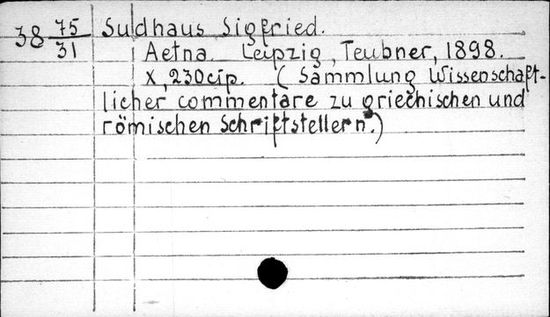 38 75/31 Sudhaus Sigfried.
Aetna. Leipzig, Teubner, 1898.
X, 230 cip. (Sammlung Wissenschaft-
licher commentare zu griechischen und
römischen Schriftstellern.)